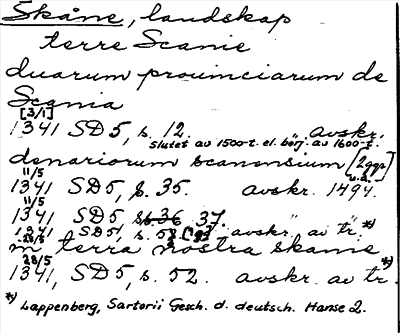 Skåne, landskap
terre Scanie
duarum prouinciarum de
Scania
[3/1]
1341 SD5, s. 12. " avskr.
slutet av 1500-t. el. börj. av 1600-t.
denariorum scanensium [2ggr]
11/5 u.å.
1341 SD5, s. 35. avskr. 1494.
11/5
1341 SD5 s. 37. "
1341 SD5, s. 52 avskr. av tr. *)
28/5
in terra nostra skanie
28/5 *)
1341, SD5, s. 52. avskr. av tr.
*) Lappenberg, Sartorii Gesch. d. deutsch. Hanse 2.